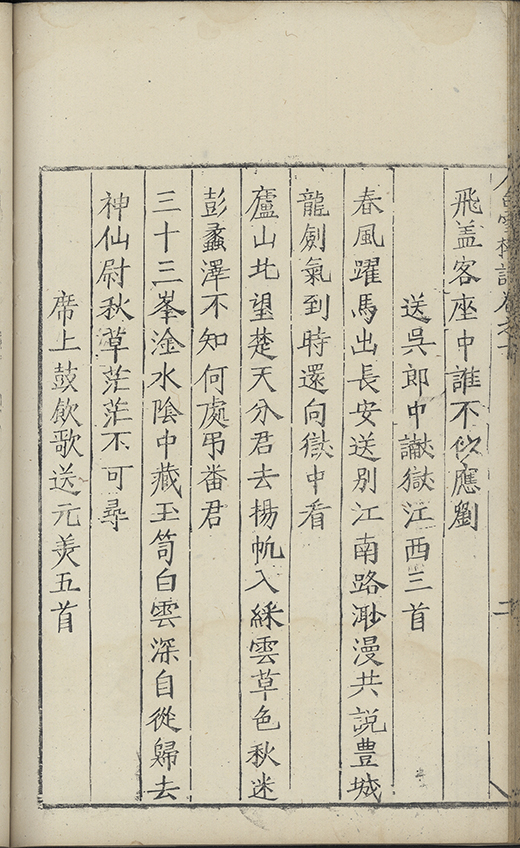 飛盖客座中誰不似應劉
送吳郎中讞獄江西三首
春風躍馬出長安送別江南路渺漫共説豊城
龍劍氣到時還向獄中看
廬山北望楚天分君去揚帆入綵雲草色秋迷
彭蠡澤不知何處弔番君
三十三峯淦水陰中藏玉笥白雲深自從歸去
神仙尉秋草茫茫不可尋
席上鼓飲歌送元美五首
二